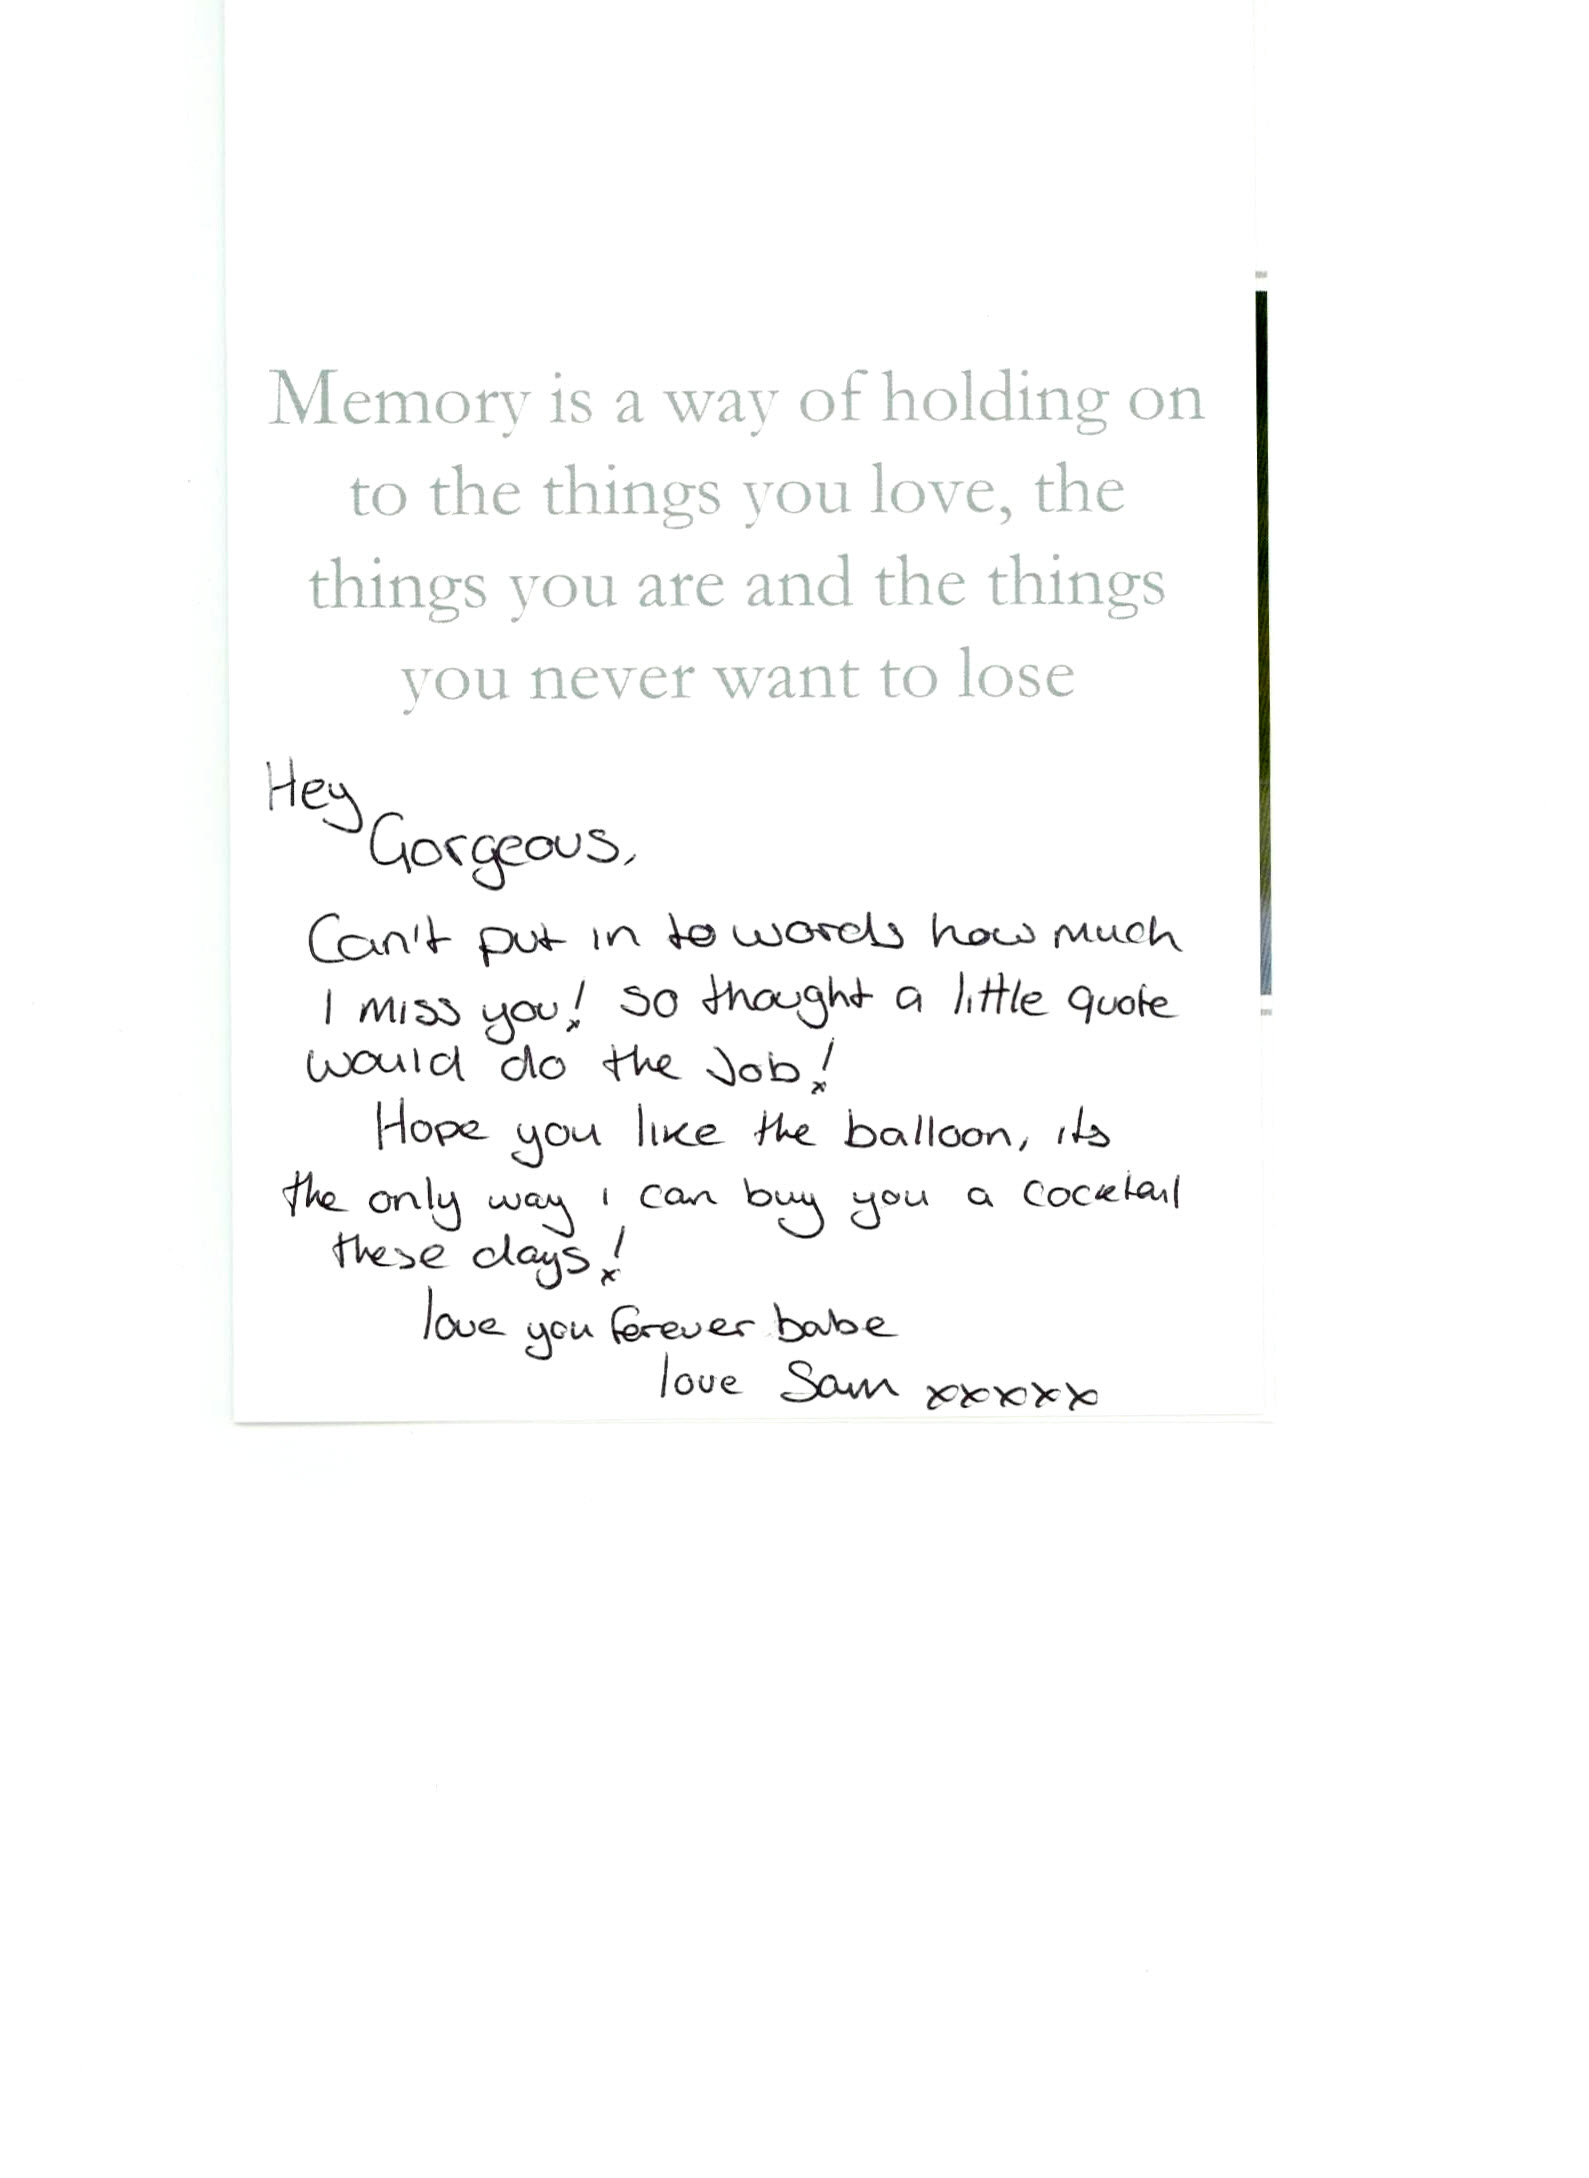 Memory is a way of holding on
to the things you love, the
things you are and the things
you never want to lose
Hey
Gorgeous,
Can't put in to words how much
I miss you! so thought a little quote
would do the Job!
Hope you like the balloon, its
the only way i can buy you a cocktail
these days!
love you forever babe
love Sam xxxxx